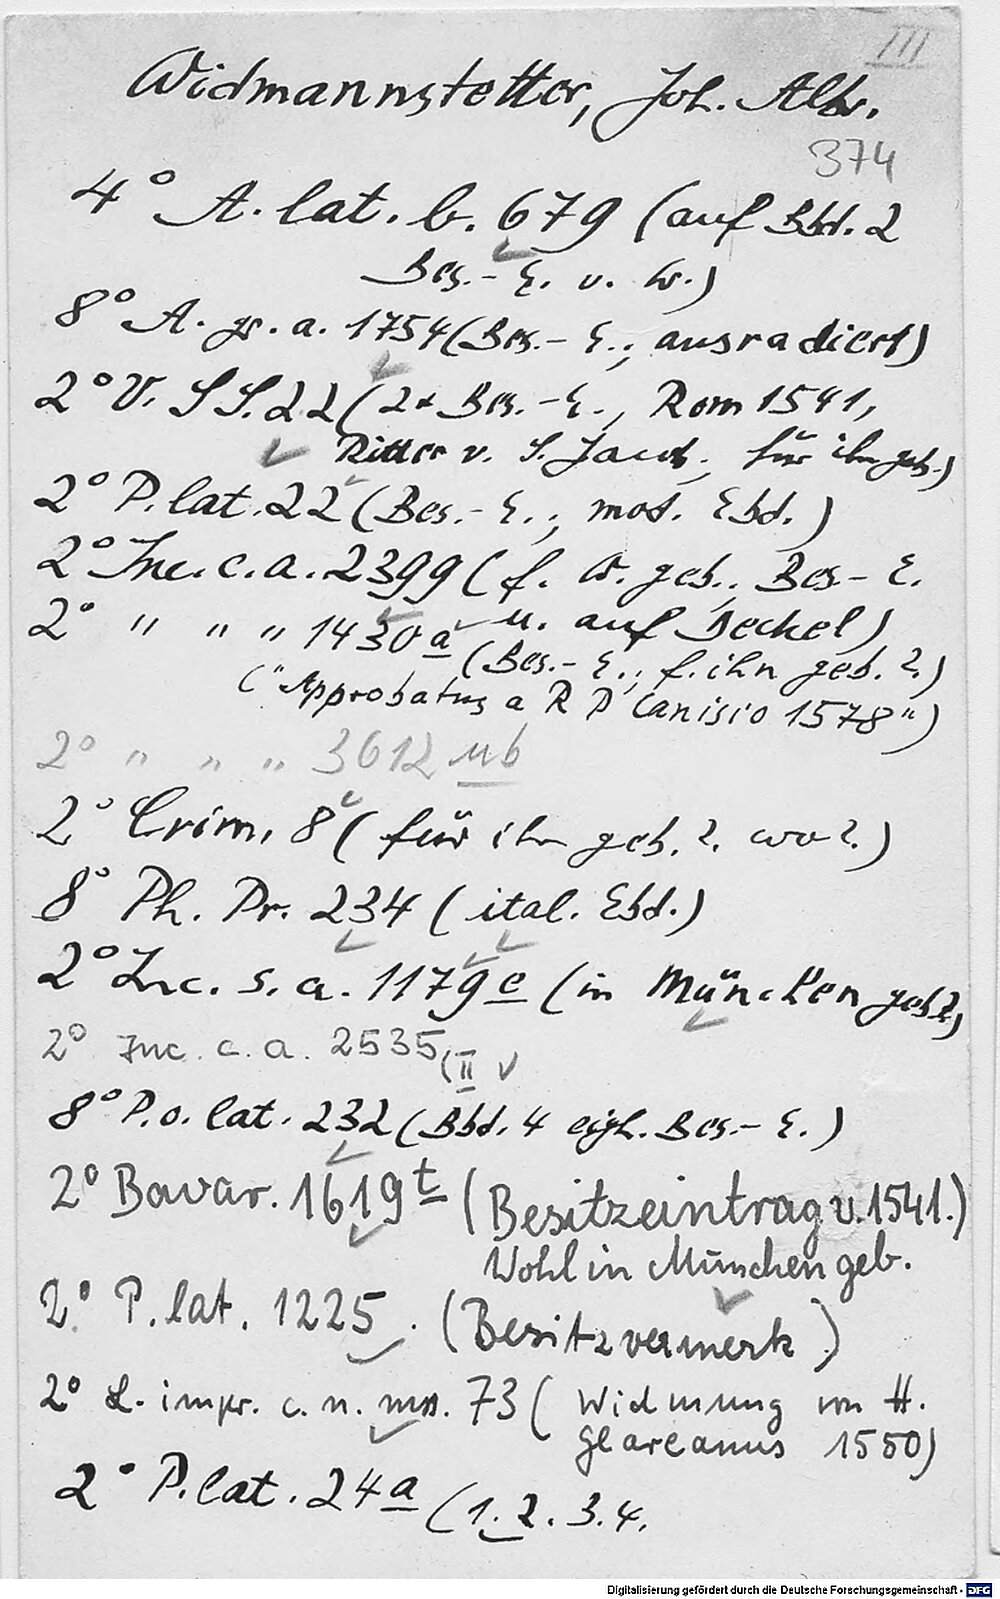 III
Widmannstetter, Joh. Albr.
374
4° A. lat. b. 679 (auf Bbd. 2
Bes.- E. v. W.)
8° A. gr. a. 1754 (Bes.- E., ausradiert)
2° V. SS. 22 (2x Bes.- E., Rom 1541,
Ritter v. S. Jacob, für ihn geb.)
2° P. lat. 22 (Bes.- E., mod. Ebd.)
2° Inc. c. a. 2399 (f. W. geb., Bes- E.
u. auf Deckel)
2° " " " 1430 a (Bes.- E., f. ihn geb. ?)
("Approbatus a R P Canisio 1578")
2° " " " 3612 mb
2° Crim. 8 (für ihn geb. ?. wo ?.)
8° Ph. Pr. 234 (ital. Ebd.)
2° Inc. s. a. 1179 e (in München geb?)
2° Inc. c. a. 2535 (II
8° P. o. lat. 232 (Bbd. 4 eigh. Bes.- E.)
2° Bavar. 1619 t (Besitzeintrag v. 1541.)
Wohl in München geb.
2° P. lat. 1225. (Besitzvermerk)
2° L. impr. c. n. mss. 73 (Widmung von H.
Glareanus 1550)
2° P. lat. 24 a (1. 2. 3. 4.
Digitalisierung gefördert durch die Deutsche Forschungsgemeinschaft - DFG